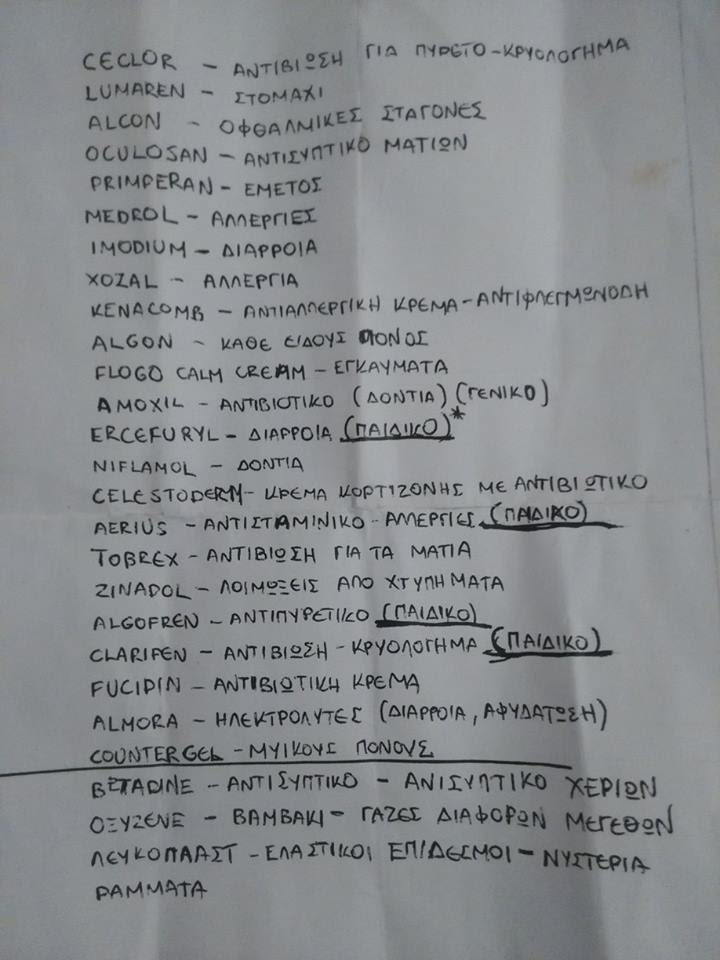 CECLOR - ΑΝΤΙΒΙΩΣΗ ΓΙΑ ΠΥΡΕΤΟ-ΚΡΥΟΛΟΓΗΜΑ
LUMAREN - ΣΤΟΜΑΧΙ
ALCON - ΟΦΘΑΛΜΙΚΕΣ ΣΤΑΓΟΝΕΣ
OCULOSAN - ΑΝΤΙΣΥΠΤΙΚΟ ΜΑΤΙΩΝ
PRIMPERAN - ΕΜΕΤΟΣ
MEDROL - ΑΛΛΕΡΓΙΕΣ
IMODIUM - ΔΙΑΡΡΟΙΑ
XOZAL - ΑΛΛΕΡΓΙΑ
KENACOMB - ΑΝΤΙΑΛΛΕΡΓΙΚΗ ΚΡΕΜΑ-ΑΝΤΙΦΛΕΓΜΩΝΩΔΗ
ALGON - ΚΑΘΕ ΕΙΔΟΥΣ ΠΟΝΟΣ
FLOGO CALM CREAM - ΕΓΚΑΥΜΑΤΑ
AMOXIL - ΑΝΤΙΒΙΟΤΙΚΟ (ΔΟΝΤΙΑ) (ΓΕΝΙΚΟ)
ERCEFURYL - ΔΙΑΡΡΟΙΑ (ΠΑΙΔΙΚΟ)*
NIFLAMOL - ΔΟΝΤΙΑ
CELESTODERM - ΚΡΕΜΑ ΚΟΡΤΙΖΟΝΗΣ ΜΕ ΑΝΤΙΒΙΩΤΙΚΟ
AERIUS - ΑΝΤΙΣΤΑΜΙΝΙΚΟ - ΑΛΛΕΡΓΙΕΣ (ΠΑΙΔΙΚΟ)
TOBREX - ΑΝΤΙΒΙΩΣΗ ΓΙΑ ΤΑ ΜΑΤΙΑ
ZINADOL - ΛΟΙΜΩΞΕΙΣ ΑΠΟ ΧΤΥΠΗΜΑΤΑ
ALGOFREN - ΑΝΤΙΠΥΡΕΤΙΚΟ (ΠΑΙΔΙΚΟ)
CLARIPEN - ΑΝΤΙΒΙΩΣΗ - ΚΡΥΟΛΟΓΗΜΑ (ΠΑΙΔΙΚΟ)
FUCIDIN - ΑΝΤΙΒΙΩΤΙΚΗ ΚΡΕΜΑ
ALMORA - ΗΛΕΚΤΡΟΛΥΤΕΣ (ΔΙΑΡΡΟΙΑ, ΑΦΥΔΑΤΩΣΗ)
COUNTERGEL - ΜΥΙΚΟΥΣ ΠΟΝΟΥΣ
BETADINE - ΑΝΤΙΣΥΠΤΙΚΟ - ΑΝΙΣΥΠΤΙΚΟ ΧΕΡΙΩΝ
ΟΞΥΖΕΝΕ - ΒΑΜΒΑΚΙ - ΓΑΖΕΣ ΔΙΑΦΟΡΩΝ ΜΕΓΕΘΩΝ
ΛΕΥΚΟΠΛΑΣΤ - ΕΛΑΣΤΙΚΟΙ ΕΠΙΔΕΣΜΟΙ - ΝΥΣΤΕΡΙΑ
ΡΑΜΜΑΤΑ